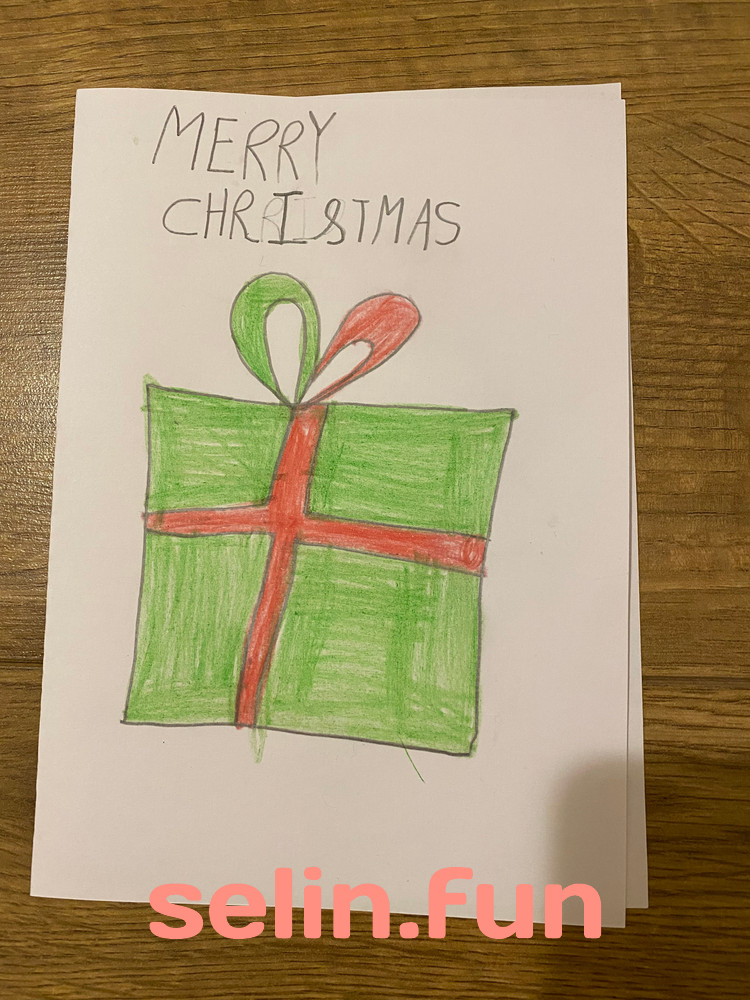 MERRY
CHRISTMAS
selin.fun